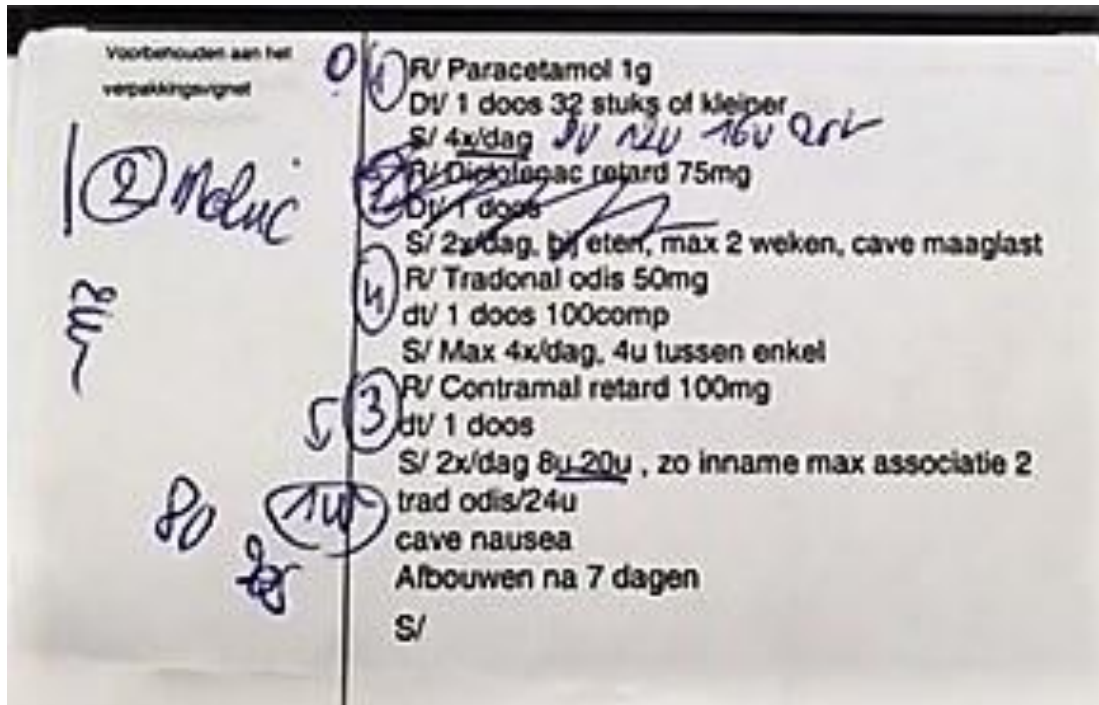 Voorbehouden aan het
verpakkingsvignet
R/ Paracetamol 1g
Dt/ 1 doos 32 stuks of kleiner
S/ 4x/dag 8u 12u 16u 20u
R/ Diclofenac retard 75mg
Dt/ 1 doos
S/ 2x/dag, bij eten, max 2 weken, cave maaglast
R/ Tradonal odis 50mg
dt/ 1 doos 100comp
S/ Max 4x/dag, 4u tussen enkel
R/ Contramal retard 100mg
dt/ 1 doos
S/ 2x/dag 8u 20u , zo inname max associatie 2
trad odis/24u
cave nausea
Afbouwen na 7 dagen
S/
1
2
4
3
2
8u